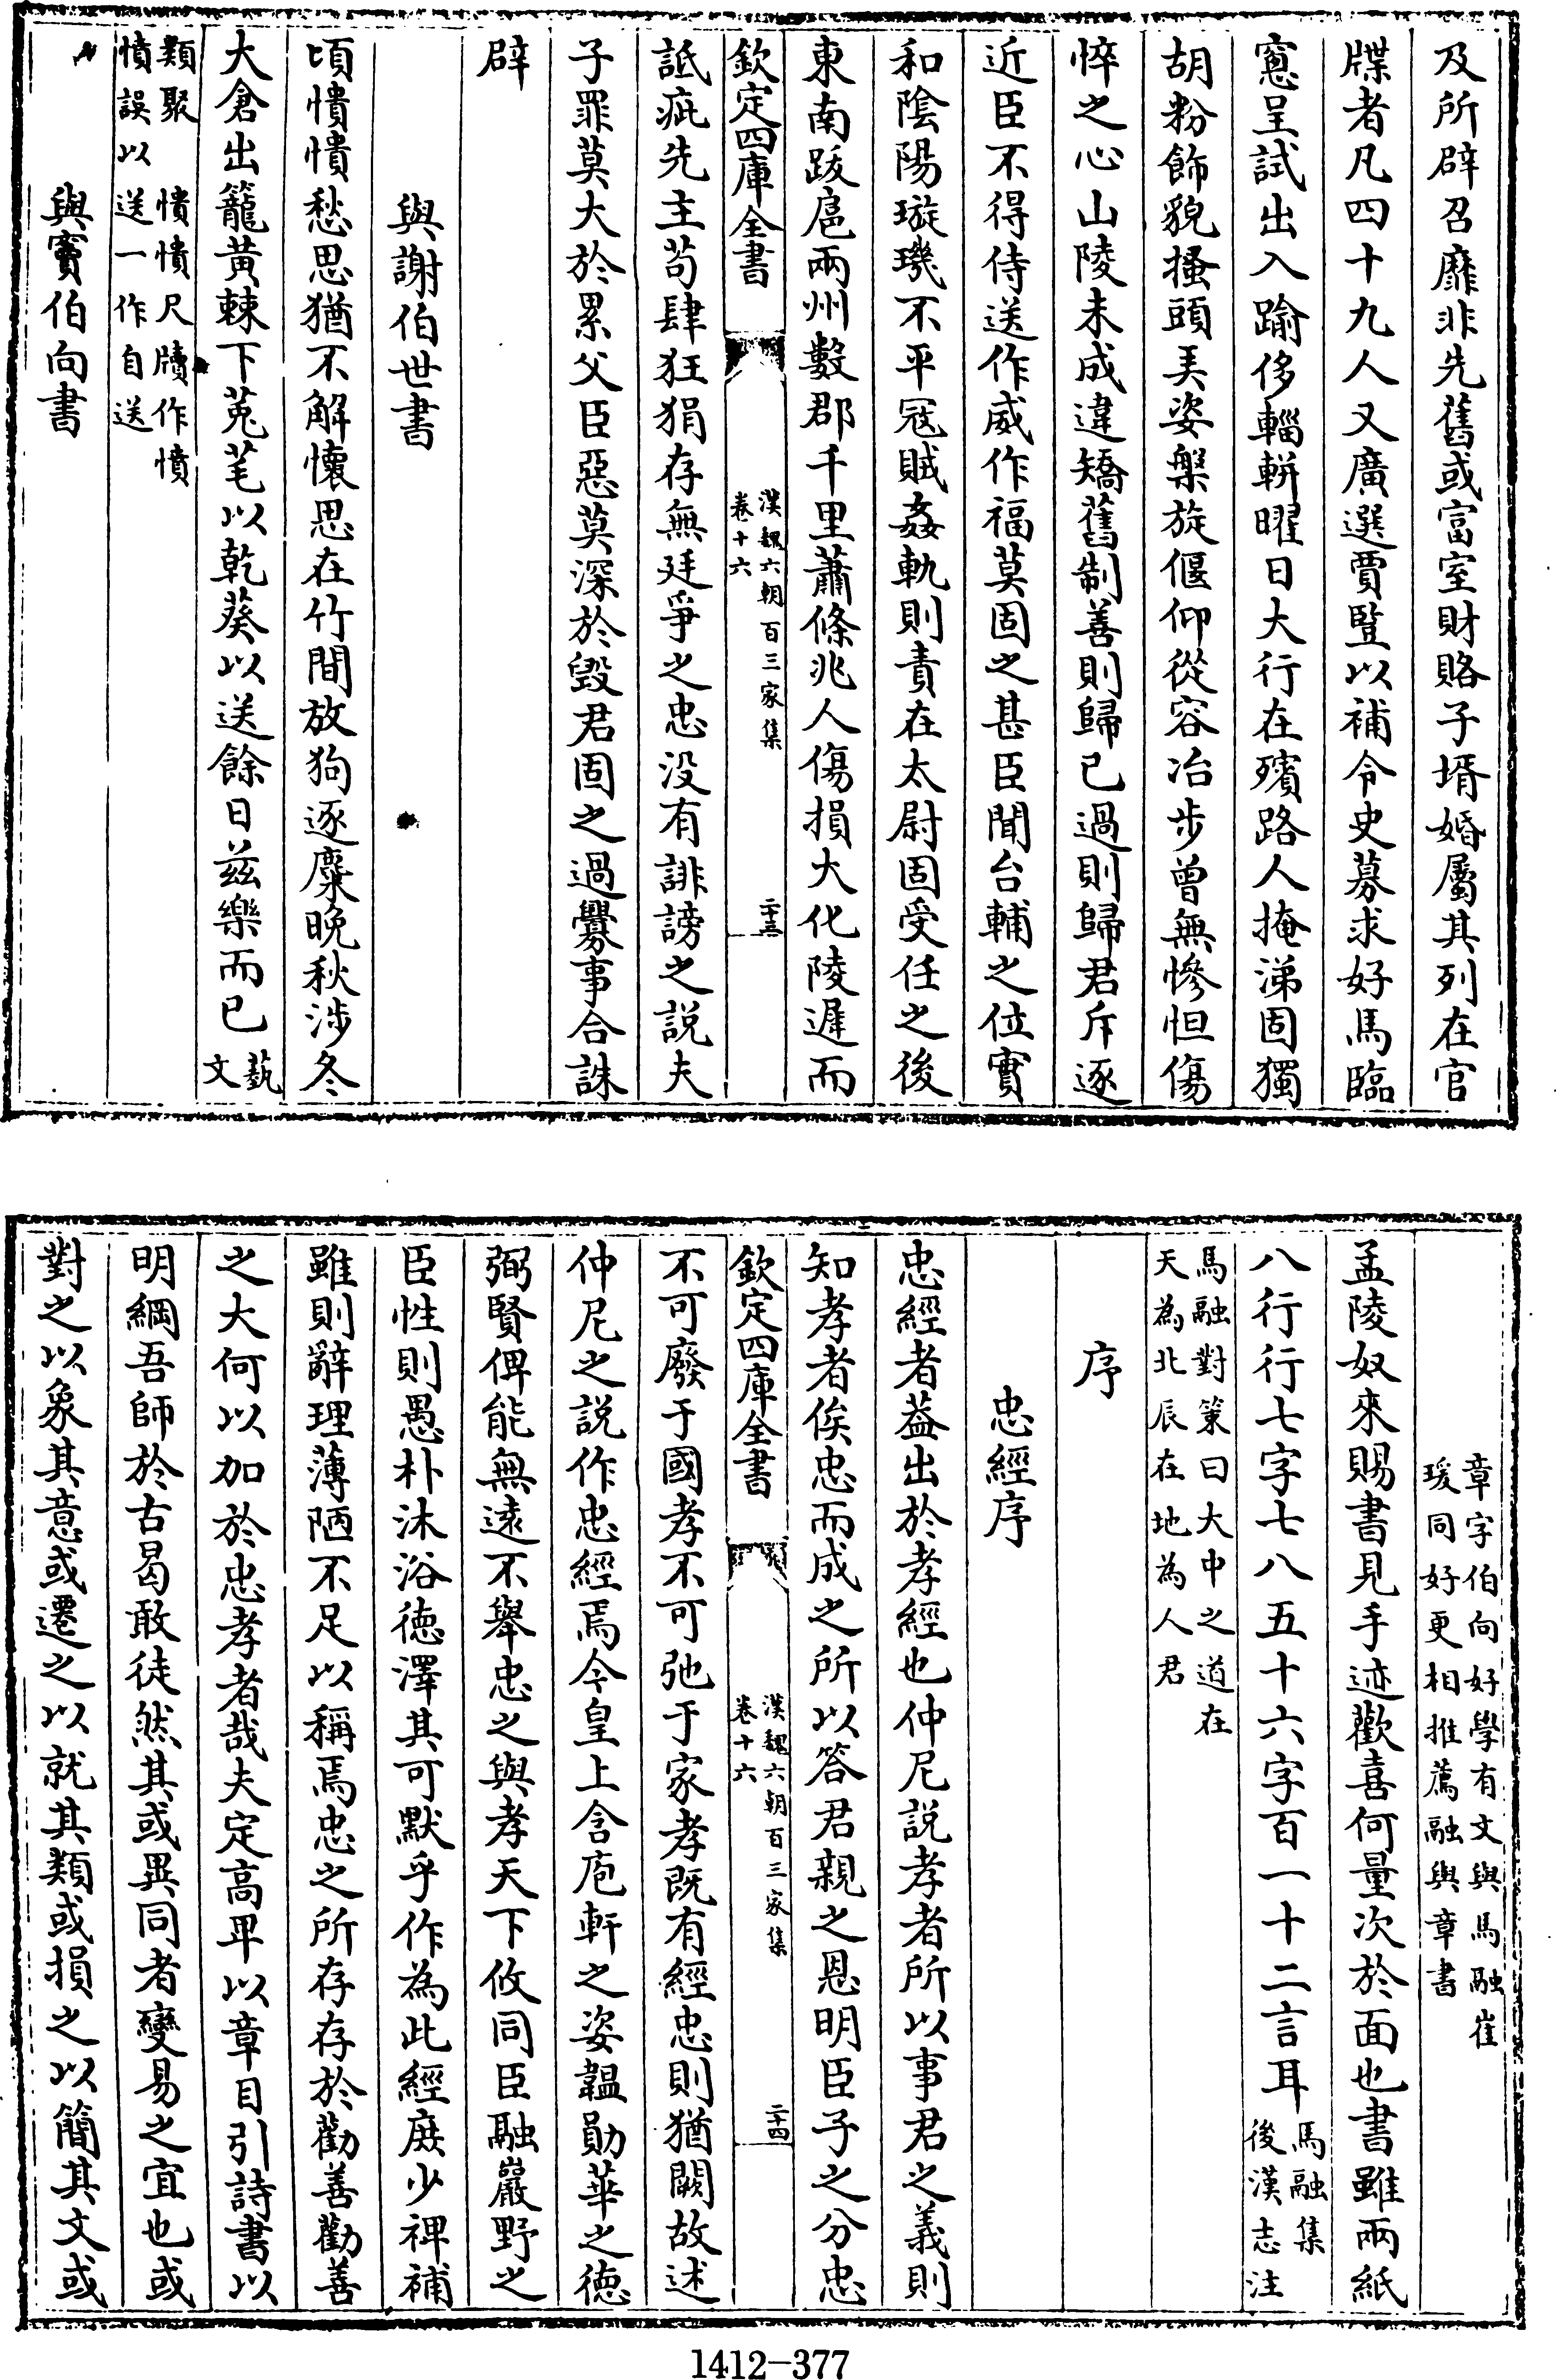 及所辟召靡非先舊或富室財賂子壻婚屬其列在官
牒者凡四十九人又廣選賈豎以補令史募求好馬臨
窻呈試出入踰侈輜軿曜日大行在殯路人掩涕固獨
胡粉飾貌搔頭美姿槃旋偃仰從容冶步曾無慘怛傷
悴之心山陵未成違矯舊制善則歸已過則歸君斥逐
近臣不得侍送作威作福莫固之甚臣聞台輔之位實
和陰陽璇璣不平冦賊姦軌則責在太尉固受任之後
東南跋扈兩州數郡千里蕭條兆人傷損大化陵遲而
欽定四庫全書
漢魏六朝百三家集
卷十六
二十三
詆疵先主苟肆狂狷存無廷爭之忠没有誹謗之説夫
子罪莫大於累父臣惡莫深於毀君固之過釁事合誅
辟
與謝伯世書
頃憒憒愁思猶不解懷思在竹間放狗逐麋晩秋涉冬
大倉出籠黄棘下菟芼以乾葵以送餘日兹樂而已 藝文
類聚 憒憒尺牘作憤
憤誤以送一作自送
與竇伯向書
章字伯向好學有文與馬融崔
瑗同好更相推薦融與章書
孟陵奴來賜書見手迹歡喜何量次於面也書雖兩紙
八行行七字七八五十六字百一十二言耳 馬融集後漢志注
馬融對策曰大中之道在
天為北辰在地為人君
序
忠經序
忠經者葢出於孝經也仲尼説孝者所以事君之義則
知孝者俟忠而成之所以答君親之恩明臣子之分忠
欽定四庫全書
漢魏六朝百三家集
卷十六
二十四
不可廢于國孝不可弛于家孝既有經忠則猶闕故述
仲尼之説作忠經焉今皇上含庖軒之姿韞勛華之徳
弼賢俾能無逺不舉忠之與孝天下攸同臣融巖野之
臣性則愚朴沐浴徳澤其可默乎作為此經庻少裨補
雖則辭理薄陋不足以稱焉忠之所存存於勸善勸善
之大何以加於忠孝者哉夫定高卑以章目引詩書以
明綱吾師於古曷敢徒然其或異同者變易之宜也或
對之以象其意或遷之以就其類或損之以簡其文或
1412—377